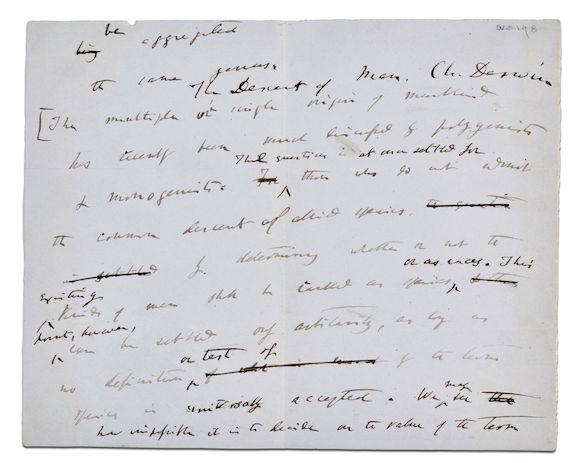 be aggregated
the same genus.
The Descent of Man. Ch. Darwin
[The multiple or single origin of mankind
has recently been much discussed by polygenists
The question is at once settled for
& monogenists. those who do not admit
the common descent of allied species.
for determining whether or not the
or as races. This
existing
kinds of men shd be ranked as species
point, however,
can be settled only arbitrarily, as long as
or test of
no definition of the term
species is universally accepted. We may see
how impossible it is to decide on the value of the term